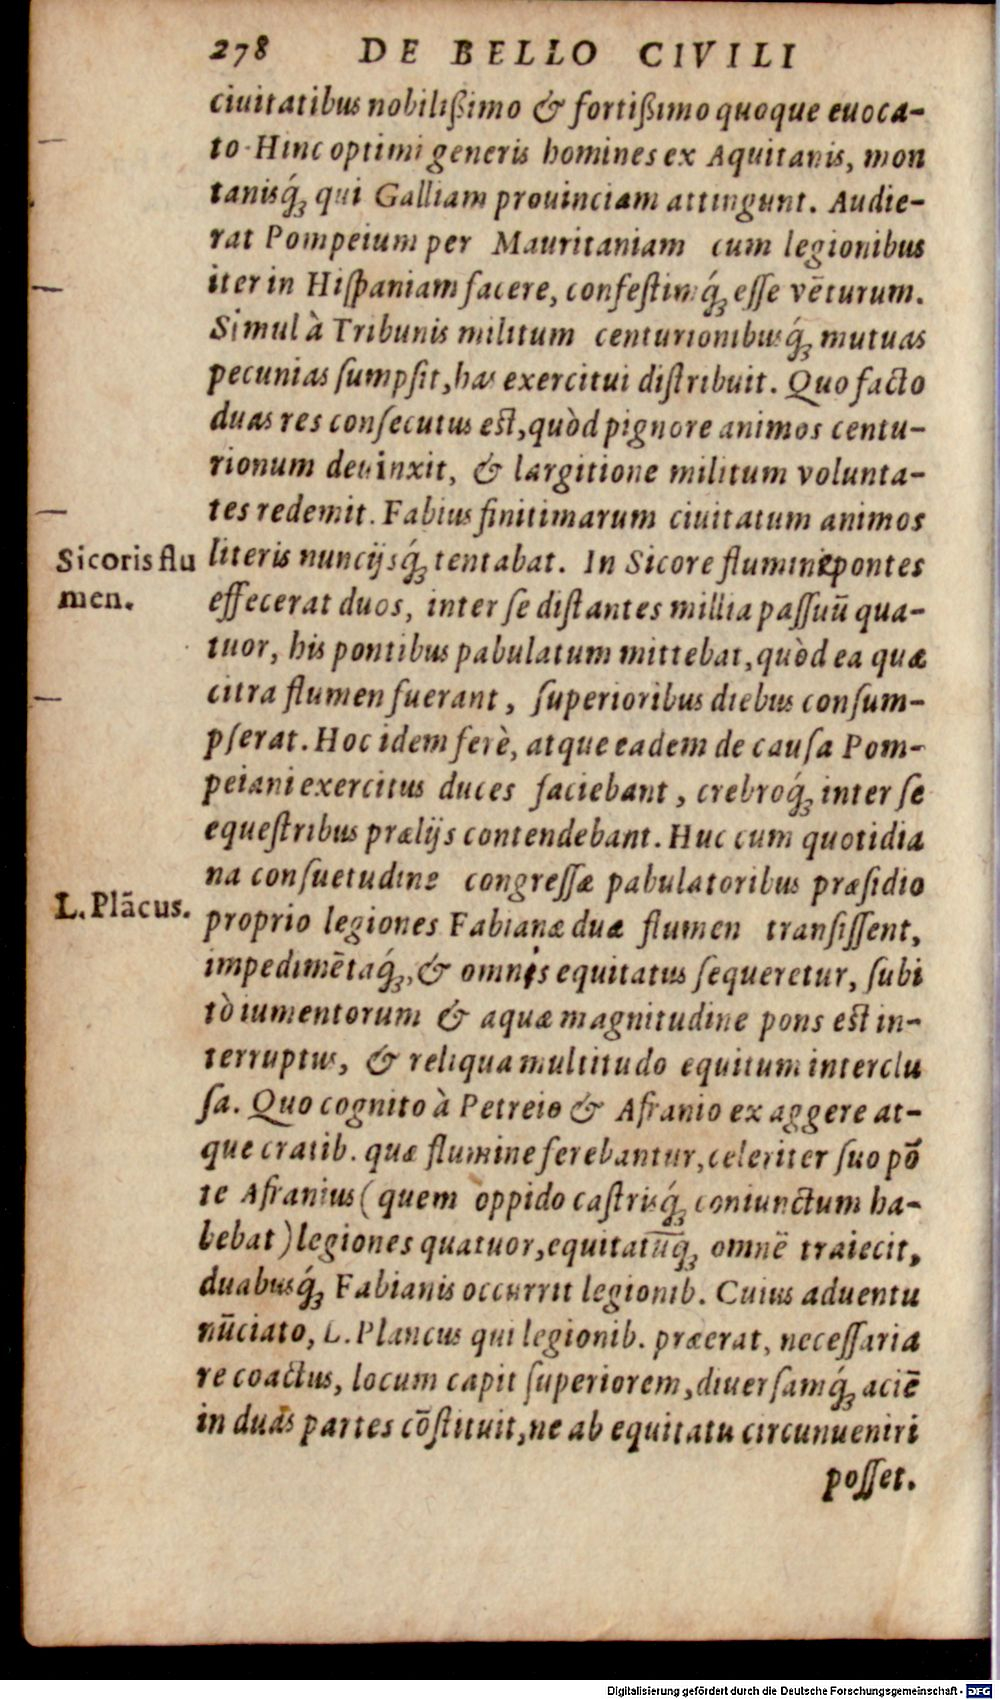 278 DE BELLO CIVILI
ciuitatibus nobilißimo & fortißimo quoque euoca-
to Hinc optimi generis homines ex Aquitanis, mon
tanisq́ꝫ qui Galliam prouinciam attingunt. Audie-
rat Pompeium per Mauritaniam cum legionibus
iter in Hiſpaniam facere, confeſtimq́ꝫ eſſe vẽturum.
Simul à Tribunis militum centurionibusq́ꝫ mutuas
pecunias ſumpſit, has exercitui diſtribuit. Quo facto
duas res conſecutus eſt, quòd pignore animos centu-
rionum deuinxit, & largitione militum volunta-
tes redemit. Fabius finitimarum ciuitatum animos
Sicoris flu
men.
literis nuncijsq́ꝫ tentabat. In Sicore flumine pontes
effecerat duos, inter ſe diſtantes millia paſſuũ qua-
tuor, his pontibus pabulatum mittebat, quòd ea quæ
citra flumen fuerant, ſuperioribus diebus conſum-
pſerat. Hoc idem ferè, atque eadem de cauſa Pom-
peiani exercitus duces faciebant, crebroq́ꝫ inter ſe
equeſtribus prælijs contendebant. Huc cum quotidia
na conſuetudine congreſſæ pabulatoribus præſidio
L. Plãcus.
proprio legiones Fabianæ duæ flumen tranſiſſent,
impedimẽtaq́ꝫ, & omnis equitatus ſequeretur, ſubi
tò iumentorum & aquæ magnitudine pons eſt in-
terruptus, & reliqua multitudo equitum interclu
ſa. Quo cognito à Petreio & Afranio ex aggere at-
que cratib. quæ flumine ferebantur, celeriter ſuo põ
te Afranius (quem oppido caſtrisq́ꝫ coniunctum ha-
bebat) legiones quatuor, equitatũq́ꝫ omnẽ traiecit,
duabusq́ꝫ Fabianis occurrit legionib. Cuius aduentu
nũciato, L. Plancus qui legionib. præerat, neceſſaria
re coactus, locum capit ſuperiorem, diuerſamq́ꝫ aciẽ
in duas partes cõſtituit, ne ab equitatu circunueniri
poſſet.
Digitalisierung gefördert durch die Deutsche Forschungsgemeinschaft - DFG